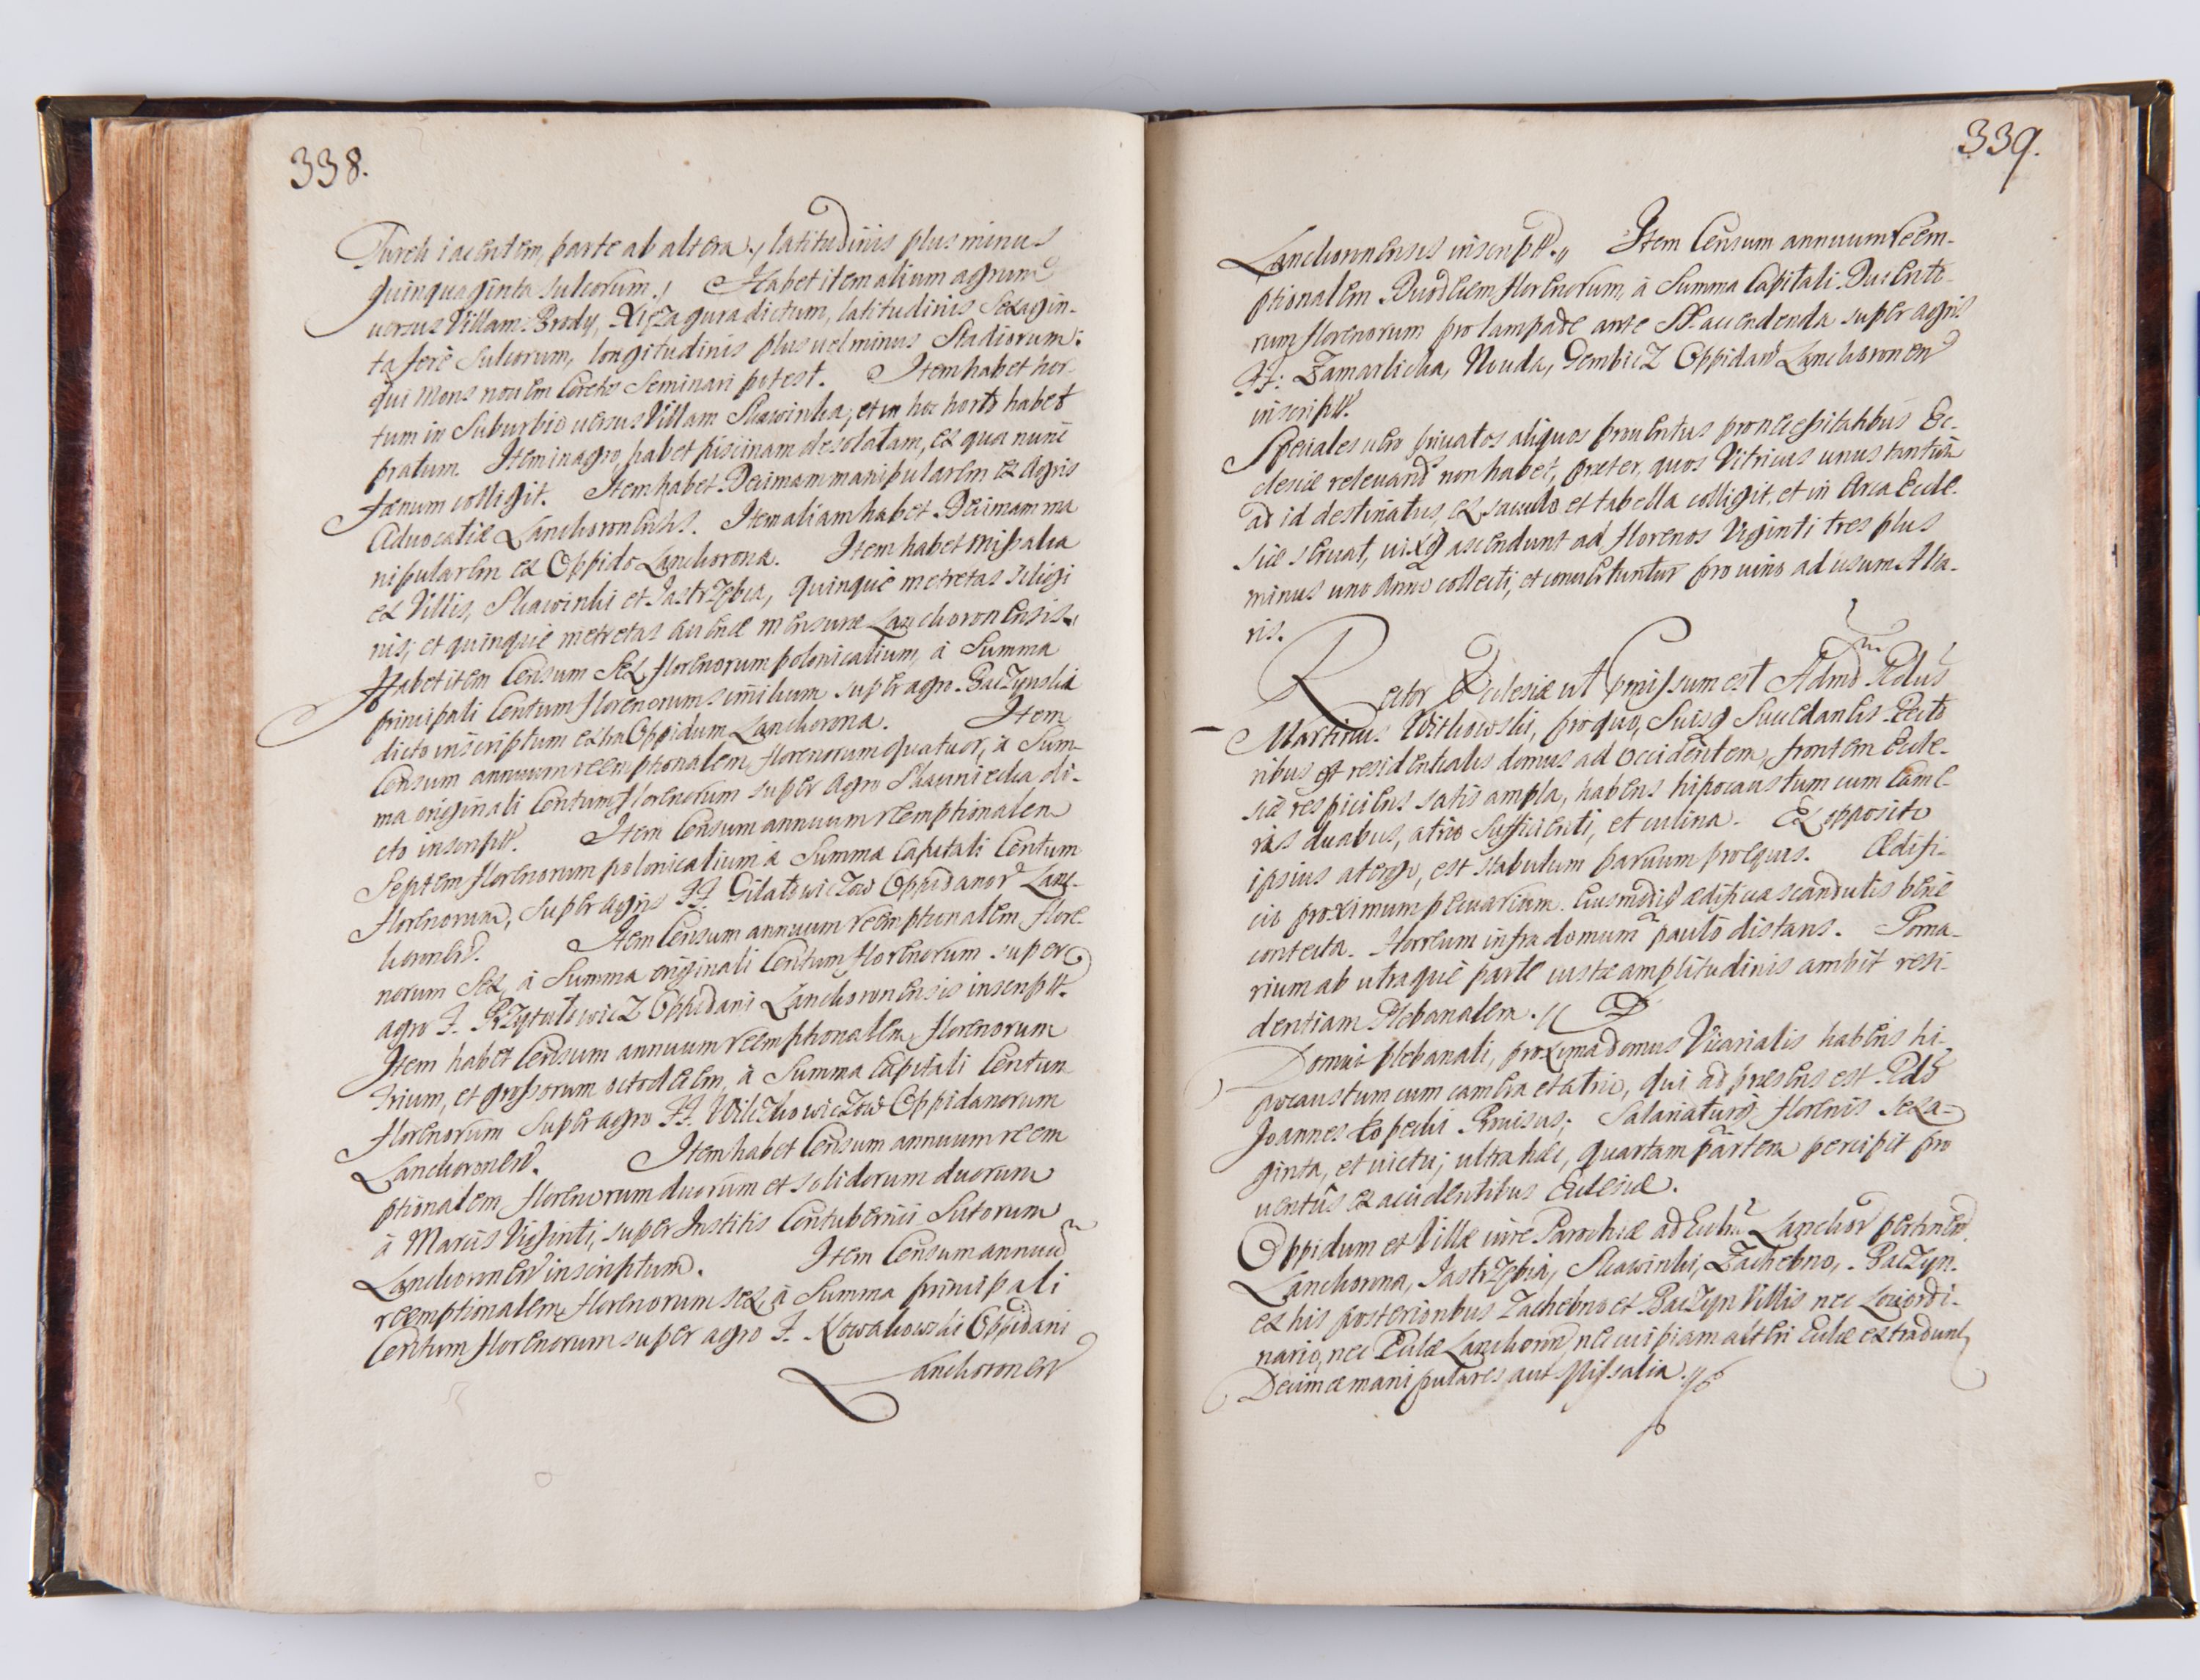 338.
Tureli iacentem, parte ab altera, latitudinis plus minus
quinquaginta sulcorum. Habet item alium agrum
versus Villam Brody, Xięza gura dictum, latitudinis sexagin-
ta ferè sulcorum, longitudinis plus vel minus Stadiorum:
qui Mons novem Coretis Seminari potest. Item habet hor-
tum in Suburbio versus Villam Skawinka; et in hoc horto habet
pratum. Item in agro, habet piscinam desolatam, ex qua nunc
fænum colligit. Item habet Decimam manipularem ex Agris
Advocatiæ Lanckoronensis. Item aliam habet Decimam ma
nipularem ex Oppido Lanckorona. Item habet Missalia
ex Villis, Skawinki et Jastrzębia, quinque metretas siligi
nis; et quinque metretas avenæ mensuræ Lanckoronensis.
Habet item Censum Sex florenorum polonicalium, à Summa
principali Centum florenorum similium super agro Baczynskie
dicto inscriptum extra Oppidum Lanckorona. Item
Censum annuum reemptionalem florenorum quatuor, à Sum-
ma originali Centum florenorum super Agro di-
cto inscript. Item Censum annuum reemptionalem
Septem florenorum polonicalium à Summa Capitali Centum
florenorum, super agris FF. Gilatowiczow Oppidanor Lanc-
koronen. Item Censum annuum reemptionalem flore-
norum Sex, à Summa originali Centum florenorum super
agro F. Oppidani Lanckoronensis inscript.
Item habet Censum annuum reemptionalem florenorum
trium, et grossorum octodecim, à Summa Capitali Centum
florenorum super agro FF. Wilczkowiczow Oppidanorum
Lanckoronen. Item habet Censum annuum reem
ptionalem florenorum duorum et solidorum duorum
à Marcis Viginti, super Institis Contubernii Sutorum
Lanckoronen inscriptum. Item Censum annuũ
reemptionalem florenorum sex, à Summa principali
Centum florenorum super agro F. Kowakowskie Oppidani
Lanckoronen
339.
Lanckoronensis inscript. Item Censum annuum reem-
ptionalem Duodecim florenorum, à Summa Capitali Ducento-
rum florenorum pro lampade ante SS. accendenda super agris
FF: Zamarlicka, Nauda, Dembicz Oppidan Lanckoronen
inscript.
Speciales vero privatos aliquos proventus pro necessitatibus Ec-
clesiæ relevand non habet, præter, quos Vitricus unus tantũ
ad id destinatus, ex sacculo et tabella colligit, et in Arca Eccle-
siæ servat, vixq ascendunt ad florenos Viginti tres plus
minus uno Anno collecti, et convertuntur pro vino ad usum Alta-
ris.
Rector Ecclesiæ ut præmissum est Admo Rdus Dnus
Martinus Witkowski, pro quo, Suisq Succedaneis Recto
ribus est residentialis domus ad occidentem, frontem Eccle-
siæ respiciens satis ampla, habens hipocaustum cum came-
ris duabus, atrio sufficienti, et culina. Ex opposito
ipsius a tergo, est stabulum parvum pro equis. Ædifi-
cio proximum pecuarium. Eiusmodiq ædificia scandulis benè
contecta. Horreum infra domum paulò distans. Poma-
rium ab utraque parte iustæ amplitudinis ambit resi-
dentiam Plebanalem.
Domui plebanali, proxima domus Vicarialis habens hi-
pocaustum cum camera et atrio, qui ad præsens est Rdo
Joannes Łopecki Provisus; Salariaturq florenis sexa-
ginta, et victu; ultra hæc, quartam partem percipit pro
ventûs ex accidentibus Ecclesiæ.
Oppidum et Villæ iure Parochiæ ad Lanckor pertinen.
Lanckorona, Jastrzębia, Skawinki, Zachełmo, Baczyn.
ex his posterioribus Zachełmo et Baczyn Villis nec Loci ordi-
nario, nec Ecclæ Lanckoron, nec cuipiam alteri Eccłæ extradunt
Decimæ manipulares aut Missalia.